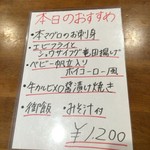 本日のおすすめ
・本マグロのお刺身
・エビフライと
シュウマイフグ竜田揚げ
・ベビー帆立入り
ホイコーロー風
・牛カルビXO醤油け焼き
・御飯 ・みそ汁付
¥1,200